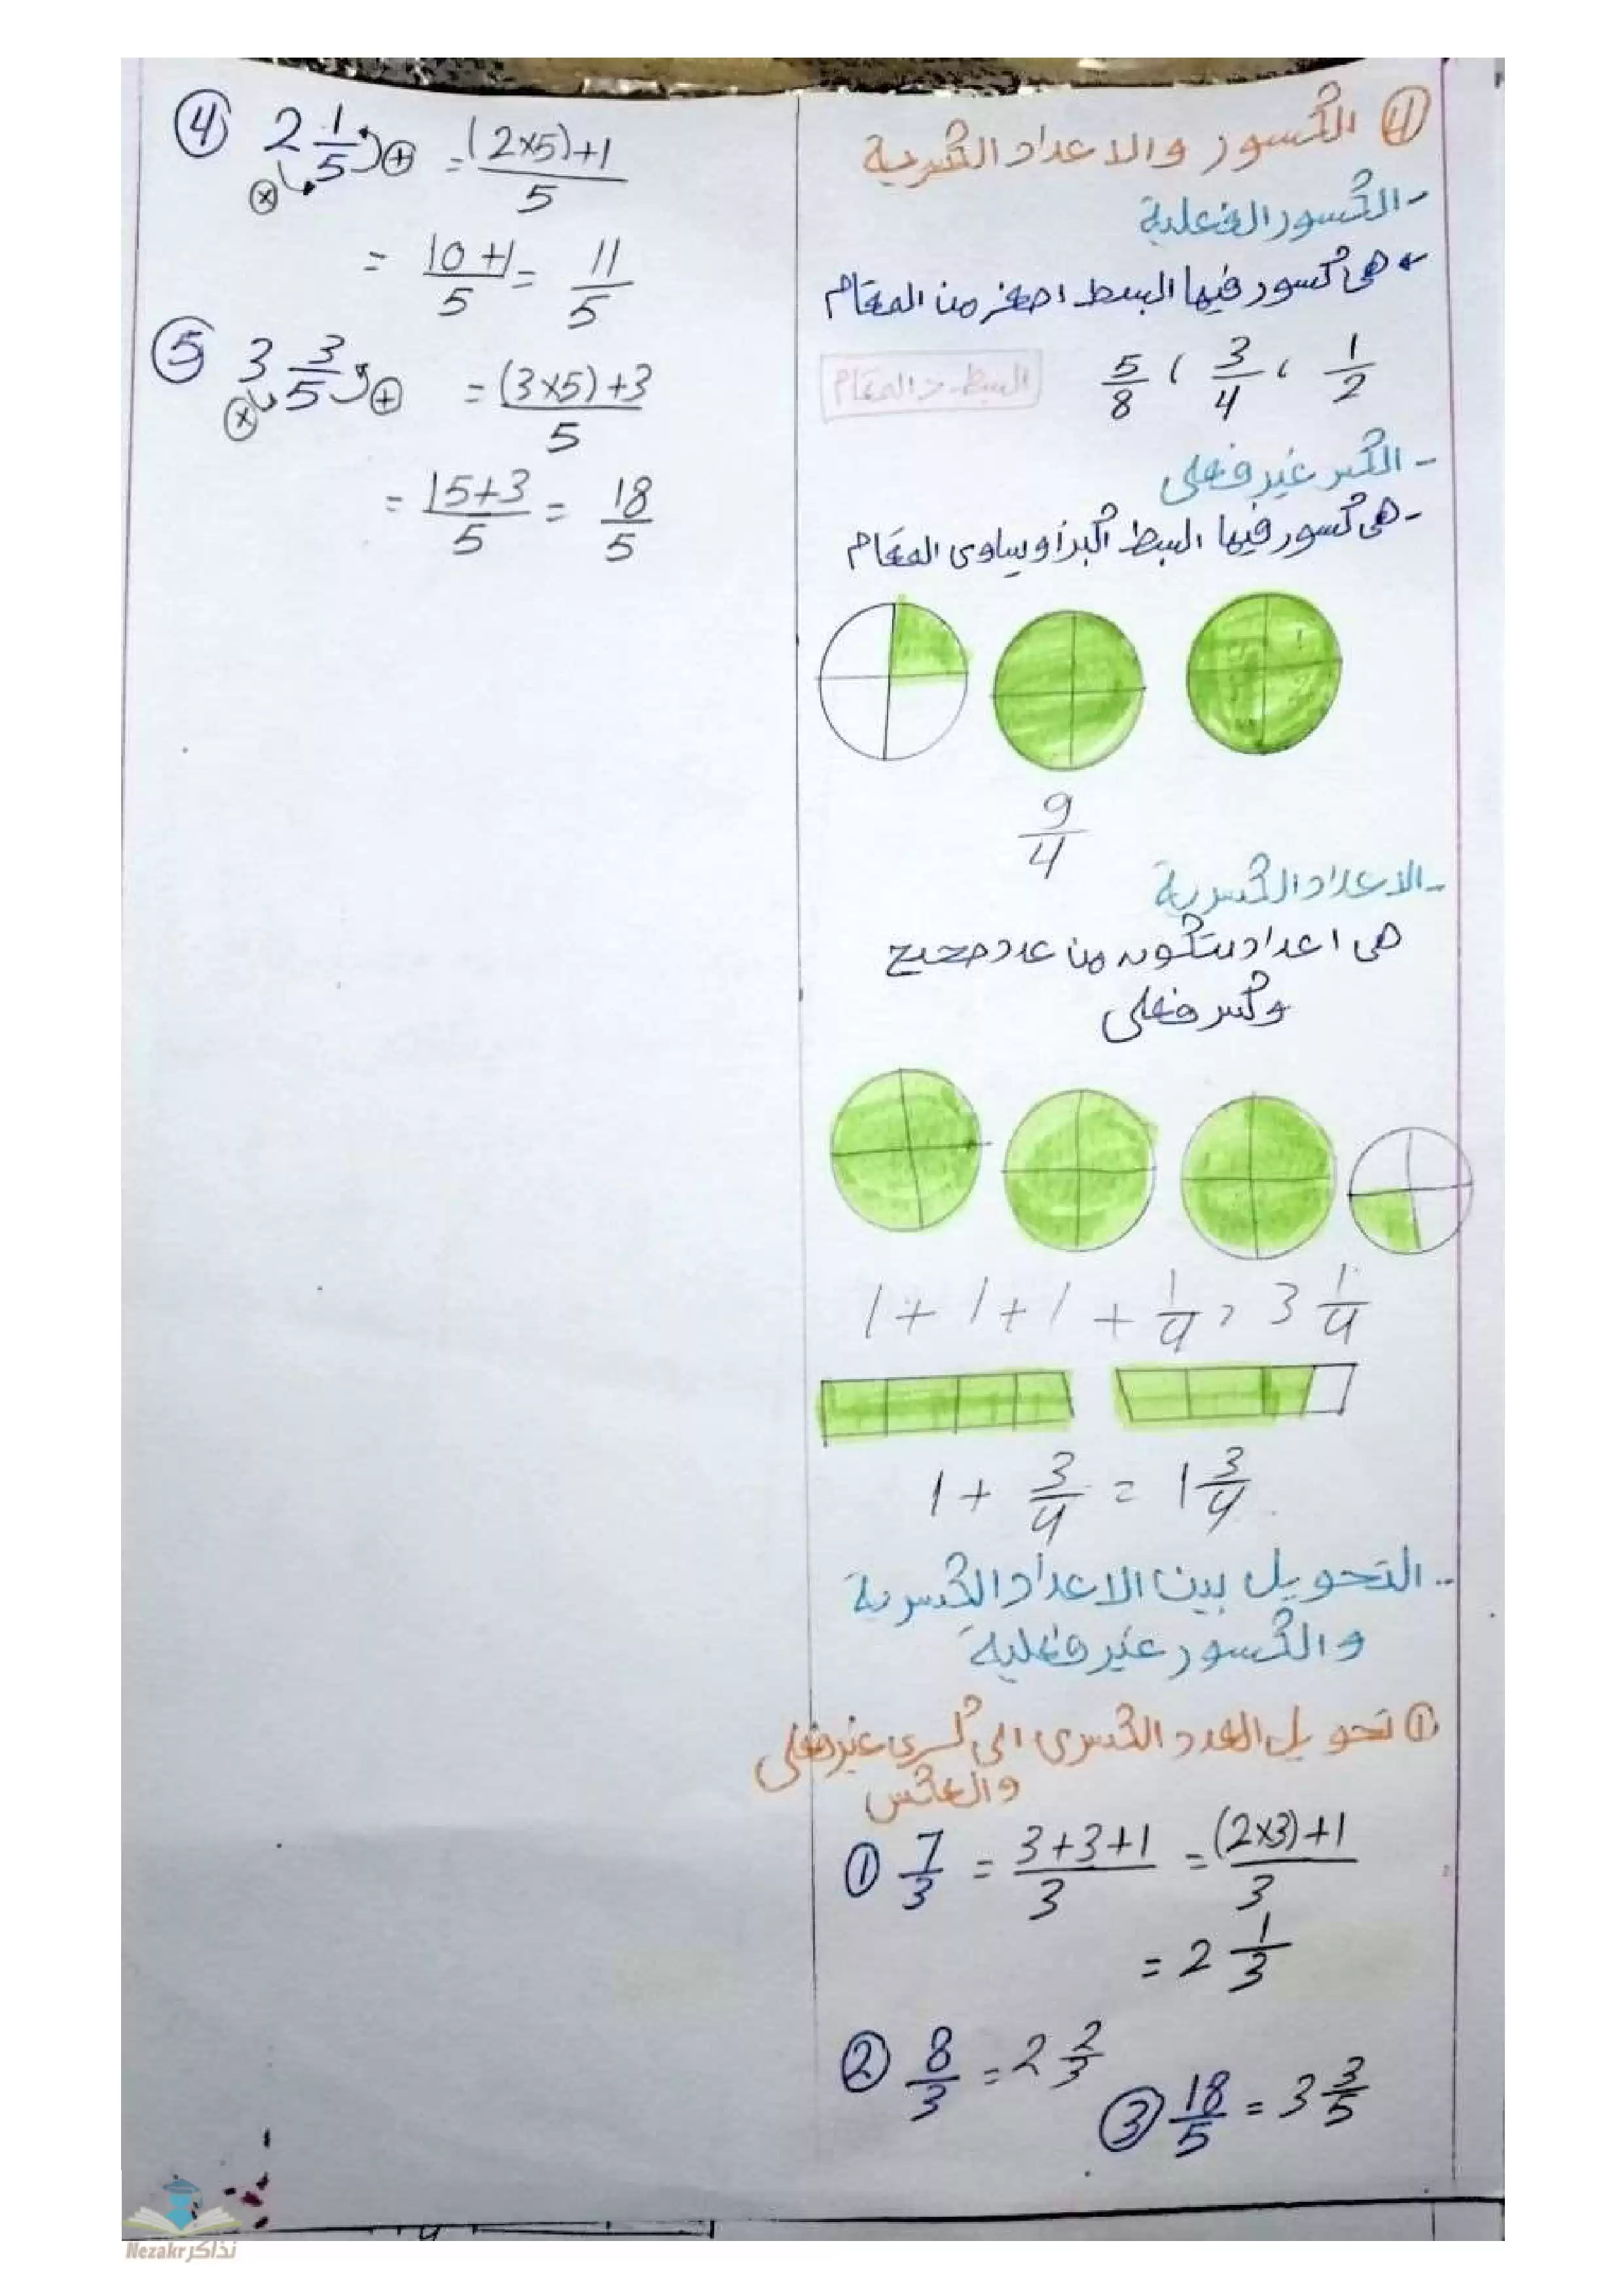 ④ الكسور والاعداد الكسرية
- الكسور الفعلية
← هى كسور فيها البسط اصغر من المقام
1/2 ، 3/4 ، 5/8
البسط > المقام
- الكسر غير فعلى
- هى كسور فيها البسط أكبر او يساوى المقام
9/4
- الاعداد الكسرية
هى اعداد تتكون من عدد صحيح
وكسر فعلى
1 + 1 + 1 + 1/4 = 3 1/4
1 + 3/4 = 1 3/4
- التحويل بين الاعداد الكسرية
والكسور غير فعلية
① تحويل العدد الكسرى الى كسرى غير فعلى
والعكس
① 7/3 = (3+3+1)/3 = ((2×3)+1)/3
= 2 1/3
② 8/3 = 2 2/3
③ 18/5 = 3 3/5
④ 2 1/5 ⊕ ⊗ = ((2×5)+1)/5
= (10+1)/5 = 11/5
⑤ 3 3/5 ⊕ ⊗ = ((3×5)+3)/5
= (15+3)/5 = 18/5
Nezakr نذاكر